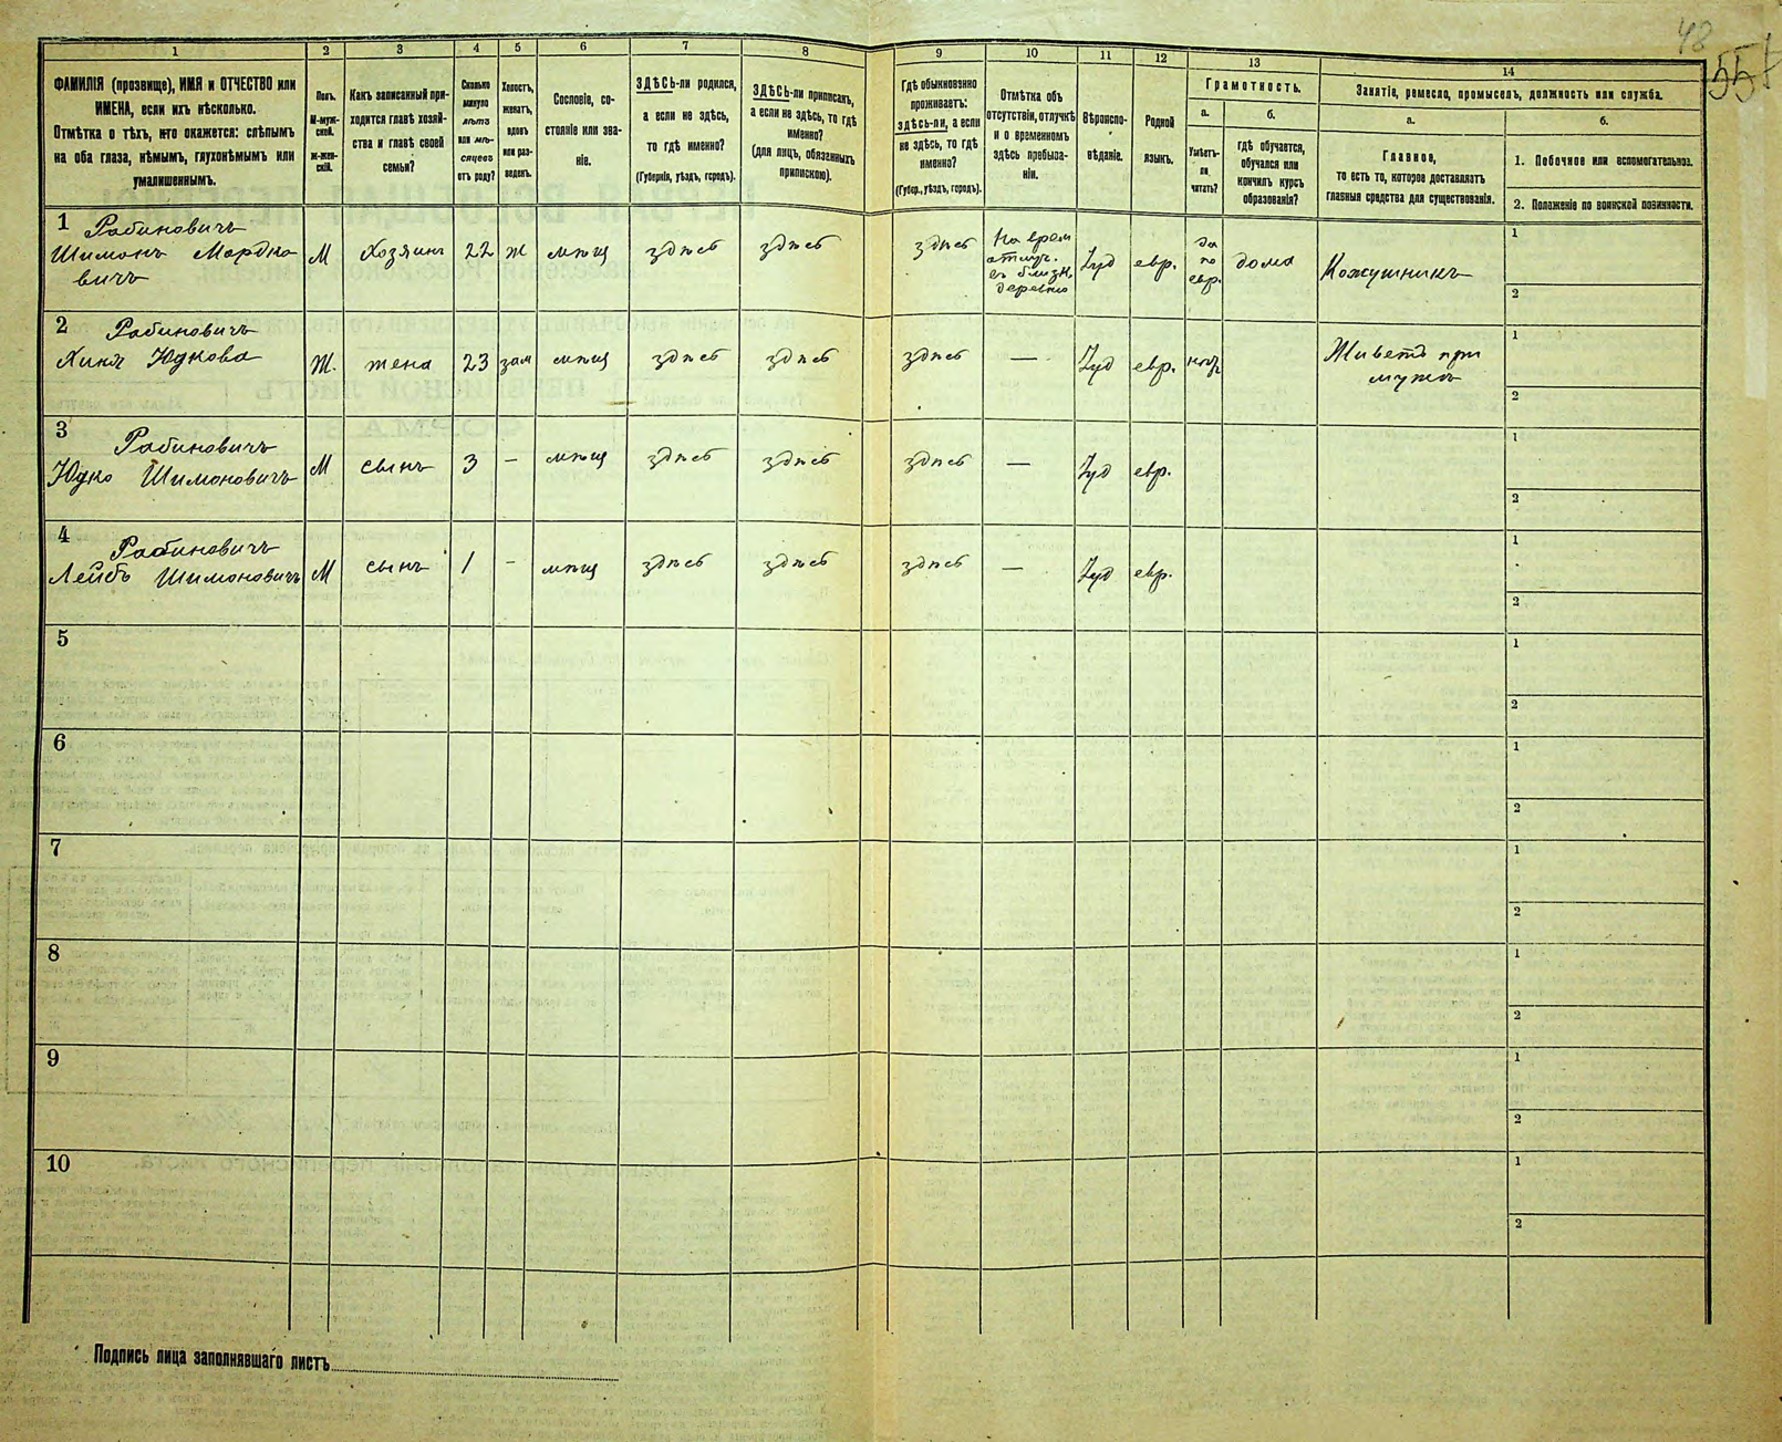 48
55
1 2 3 4 5 6 7 8 9 10 11 12 13 14
ФАМИЛІЯ (прозвище), ИМЯ и ОТЧЕСТВО или
ИМЕНА, если ихъ нѣсколько.
Отмѣтка о тѣхъ, кто окажется: слѣпымъ
на оба глаза, нѣмымъ, глухонѣмымъ или
умалишеннымъ.
Полъ.
М-муж-
ской.
Ж-жен-
скій.
Какъ записанный при-
ходится главѣ хозяй-
ства и главѣ своей
семьи?
Сколько
минуло
лѣтъ
или мѣ-
сяцевъ
отъ роду?
Холостъ,
женатъ,
вдовъ
или раз-
веденъ.
Сословіе, со-
стояніе или зва-
ніе.
ЗДѢСЬ-ли родился,
а если не здѣсь,
то гдѣ именно?
(Губернія, уѣздъ, городъ).
ЗДѢСЬ-ли приписанъ,
а если не здѣсь, то гдѣ
именно?
(для лицъ, обязанныхъ
припискою).
Гдѣ обыкновенно
проживаетъ:
здѣсь-ли, а если
не здѣсь, то гдѣ
именно?
(Губер., уѣздъ, городъ).
Отмѣтка объ
отсутствіи, отлучкѣ
и о временномъ
здѣсь пребыва-
ніи.
Вѣроиспо-
вѣданіе.
Родной
языкъ.
Грамотность.
а.
Умѣетъ-
ли
читать?
б.
гдѣ обучается,
обучался или
кончилъ курсъ
образованія?
Занятіе, ремесло, промыселъ, должность или служба.
а.
Главное,
то есть то, которое доставляетъ
главныя средства для существованія.
б.
1. Побочное или вспомогательное.
2. Положеніе по воинской повинности.
1 Рабиновичъ
Шимонъ Мордко
вичъ
М
Хозяинъ
22
ж
мѣщ
здѣсь
здѣсь
здѣсь
На врем
отлуч.
въ близк.
деревню
Іуд
евр.
да
по
евр.
дома
Кожушникъ
1
2
2 Рабиновичъ
Хиня Юдкова
Ж.
жена
23
зам
мѣщ
здѣсь
здѣсь
здѣсь
—
Іуд
евр.
нѣтъ
Живетъ при
мужѣ
1
2
3 Рабиновичъ
Юдко Шимоновичъ
М
сынъ
3
–
мѣщ
здѣсь
здѣсь
здѣсь
—
Іуд
евр.
1
2
4 Рабиновичъ
Лейбъ Шимоновичъ
М
сынъ
1
–
мѣщ
здѣсь
здѣсь
здѣсь
—
Іуд
евр.
1
2
5
1
2
6
1
2
7
1
2
8
1
2
9
1
2
10
1
2
Подпись лица заполнявшаго листъ